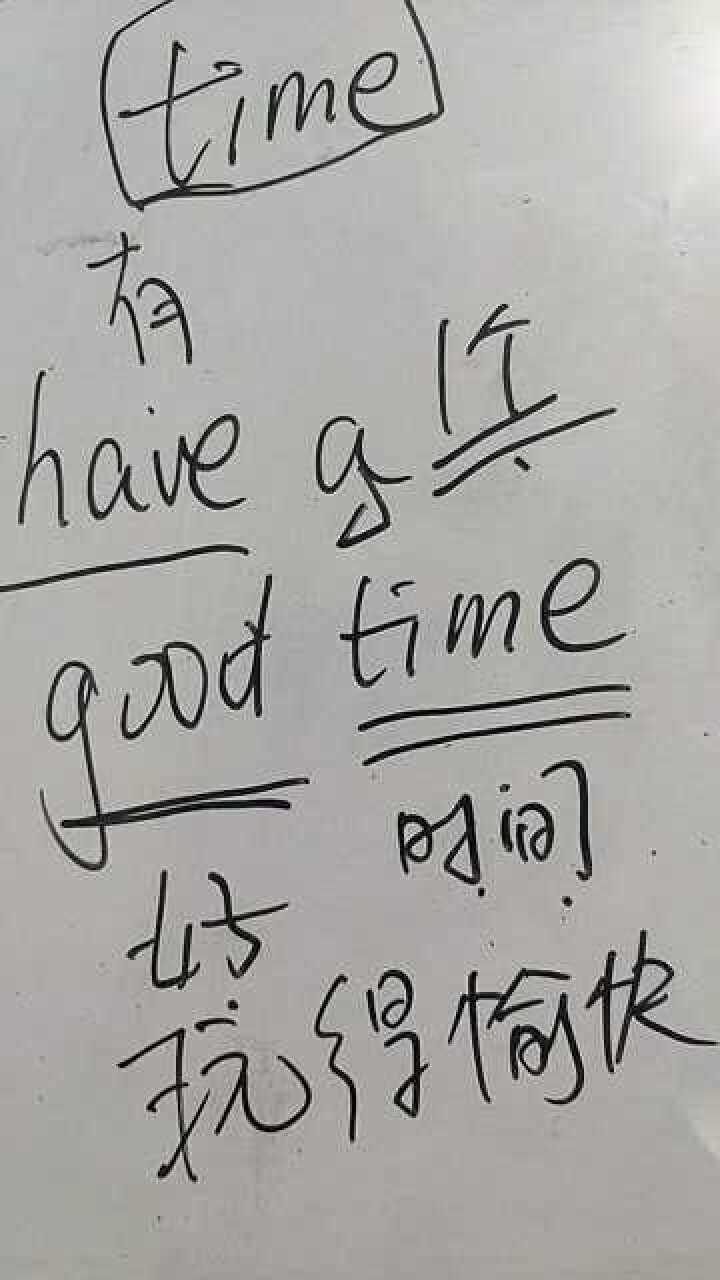 time
有
1个
have a
good time
时间
好
玩得愉快